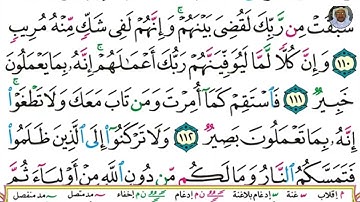 سَبَقَتْ مِن رَّبِّكَ لَقُضِىَ بَيْنَهُمْ ۚ وَإِنَّهُمْ لَفِى شَكٍّ مِّنْهُ مُرِيبٍ
١١٠ وَإِنَّ كُلًّا لَّمَّا لَيُوَفِّيَنَّهُمْ رَبُّكَ أَعْمَٰلَهُمْ ۚ إِنَّهُۥ بِمَا يَعْمَلُونَ
خَبِيرٌ ١١١ فَٱسْتَقِمْ كَمَآ أُمِرْتَ وَمَن تَابَ مَعَكَ وَلَا تَطْغَوْا۟ ۚ
إِنَّهُۥ بِمَا تَعْمَلُونَ بَصِيرٌ ١١٢ وَلَا تَرْكَنُوٓا۟ إِلَى ٱلَّذِينَ ظَلَمُوا۟
فَتَمَسَّكُمُ ٱلنَّارُ وَمَا لَكُم مِّن دُونِ ٱللَّهِ مِنْ أَوْلِيَآءَ ثُمَّ
م إقلاب غنة إدغام بلاغنة ن م إدغام ن م إخفاء مد متصل مد منفصل